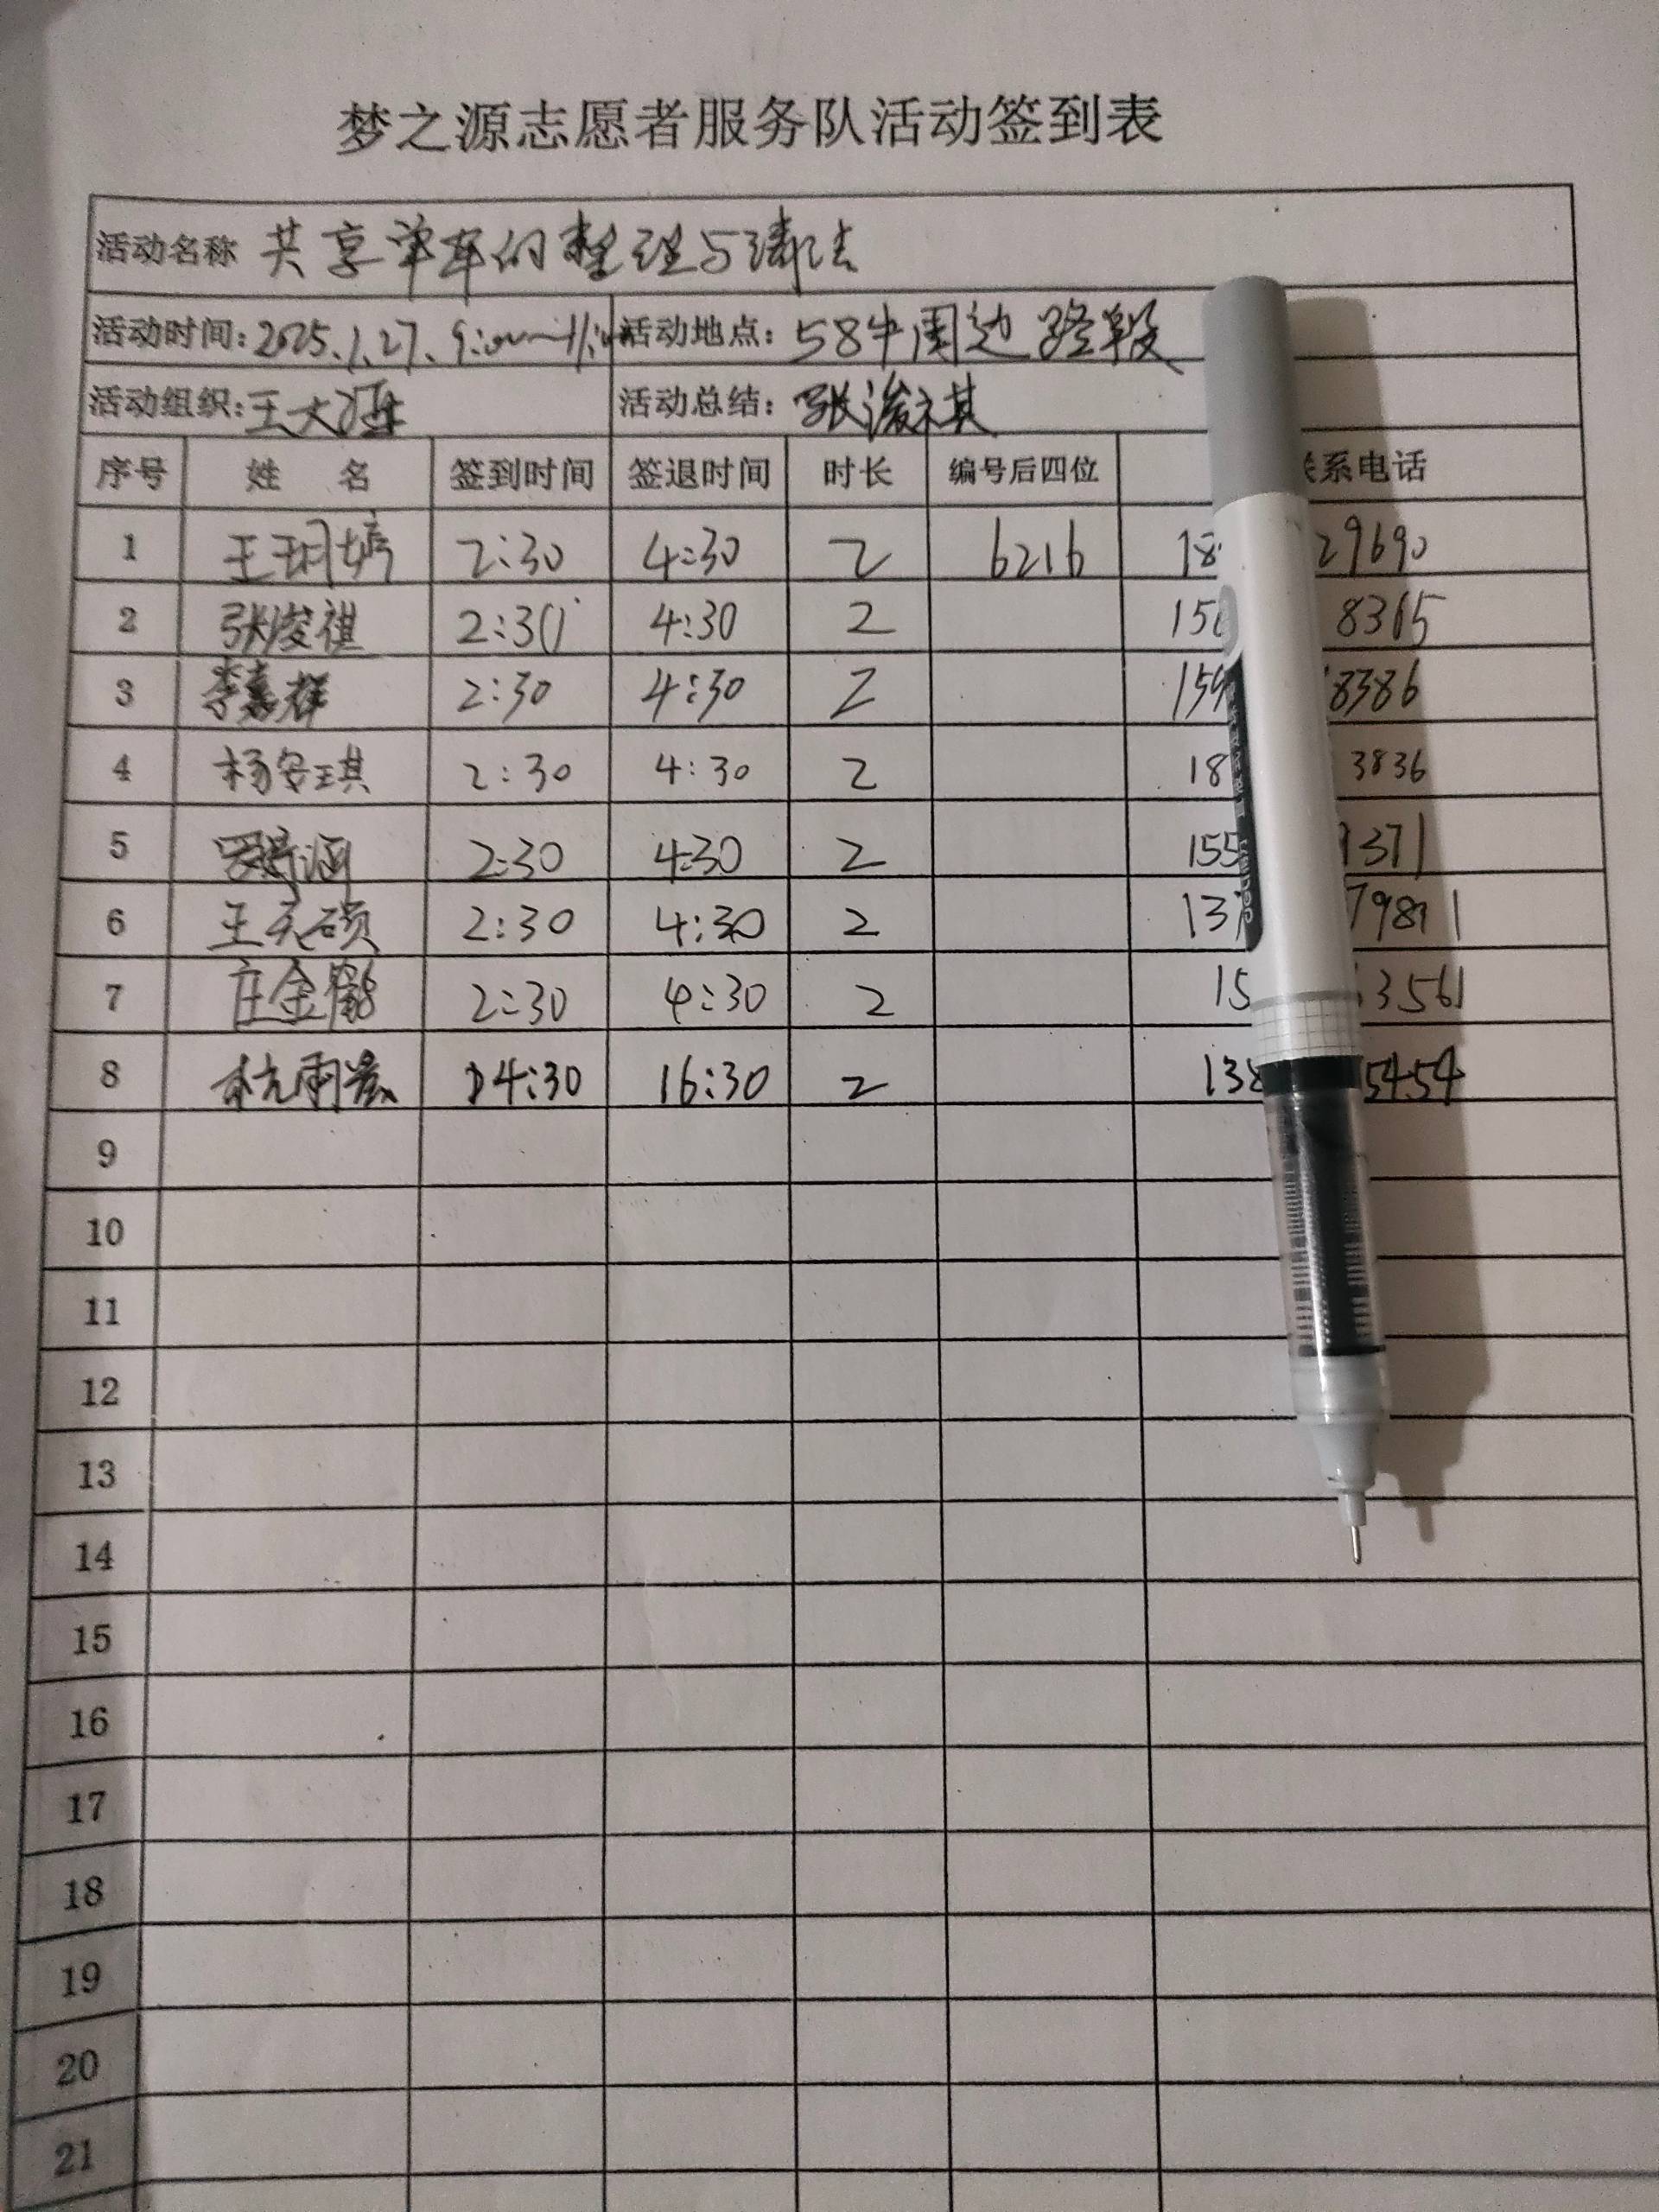 梦之源志愿者服务队活动签到表
活动名称 共享单车的整理与清洁
活动时间: 2025.1.27. 9:00~11:00 活动地点: 58中周边路段
活动组织: 王大 活动总结: 张浚祺
序号 姓 名 签到时间 签退时间 时长 编号后四位 系电话
1 王玥婷 2:30 4:30 2 6216 18 29690
2 张浚祺 2:30 4:30 2 15 8365
3 李嘉群 2:30 4:30 2 159 8386
4 杨安琪 2:30 4:30 2 18 3836
5 2:30 4:30 2 155 9371
6 王天硕 2:30 4:30 2 137 7981
7 庄金 2:30 4:30 2 15 3561
8 杭雨 14:30 16:30 2 138 5454
9
10
11
12
13
14
15
16
17
18
19
20
21